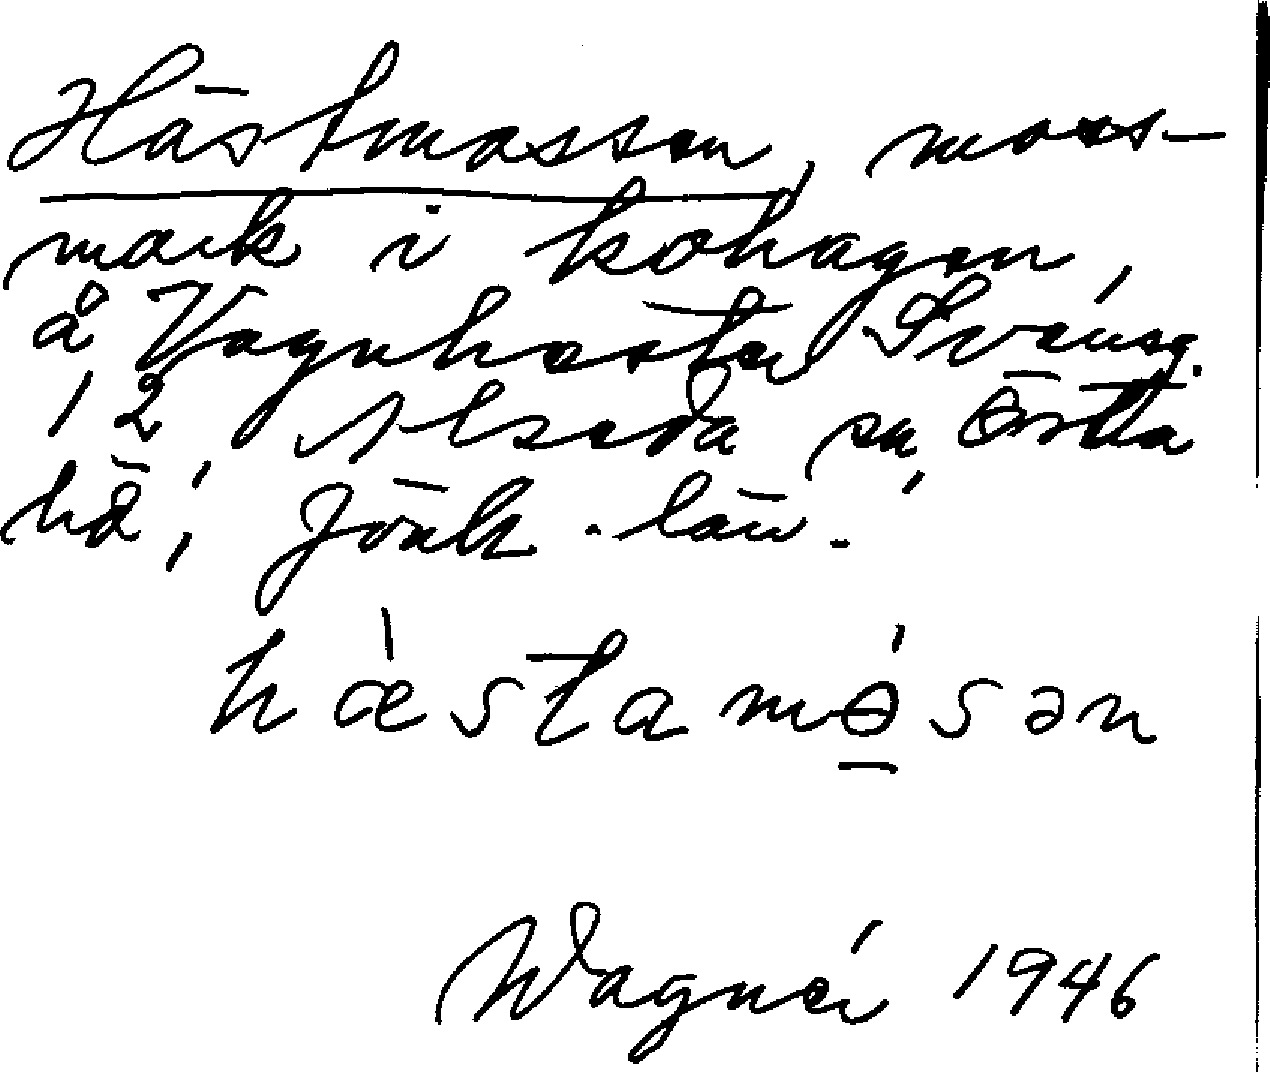 Hästmossen, moss-
mark i kohagen,
å Vagnhester Svänsg.
12 Alseda sn, Östra
hd, Jönk. län.
hæ̀stamɵ́sən
Wagnér 1946